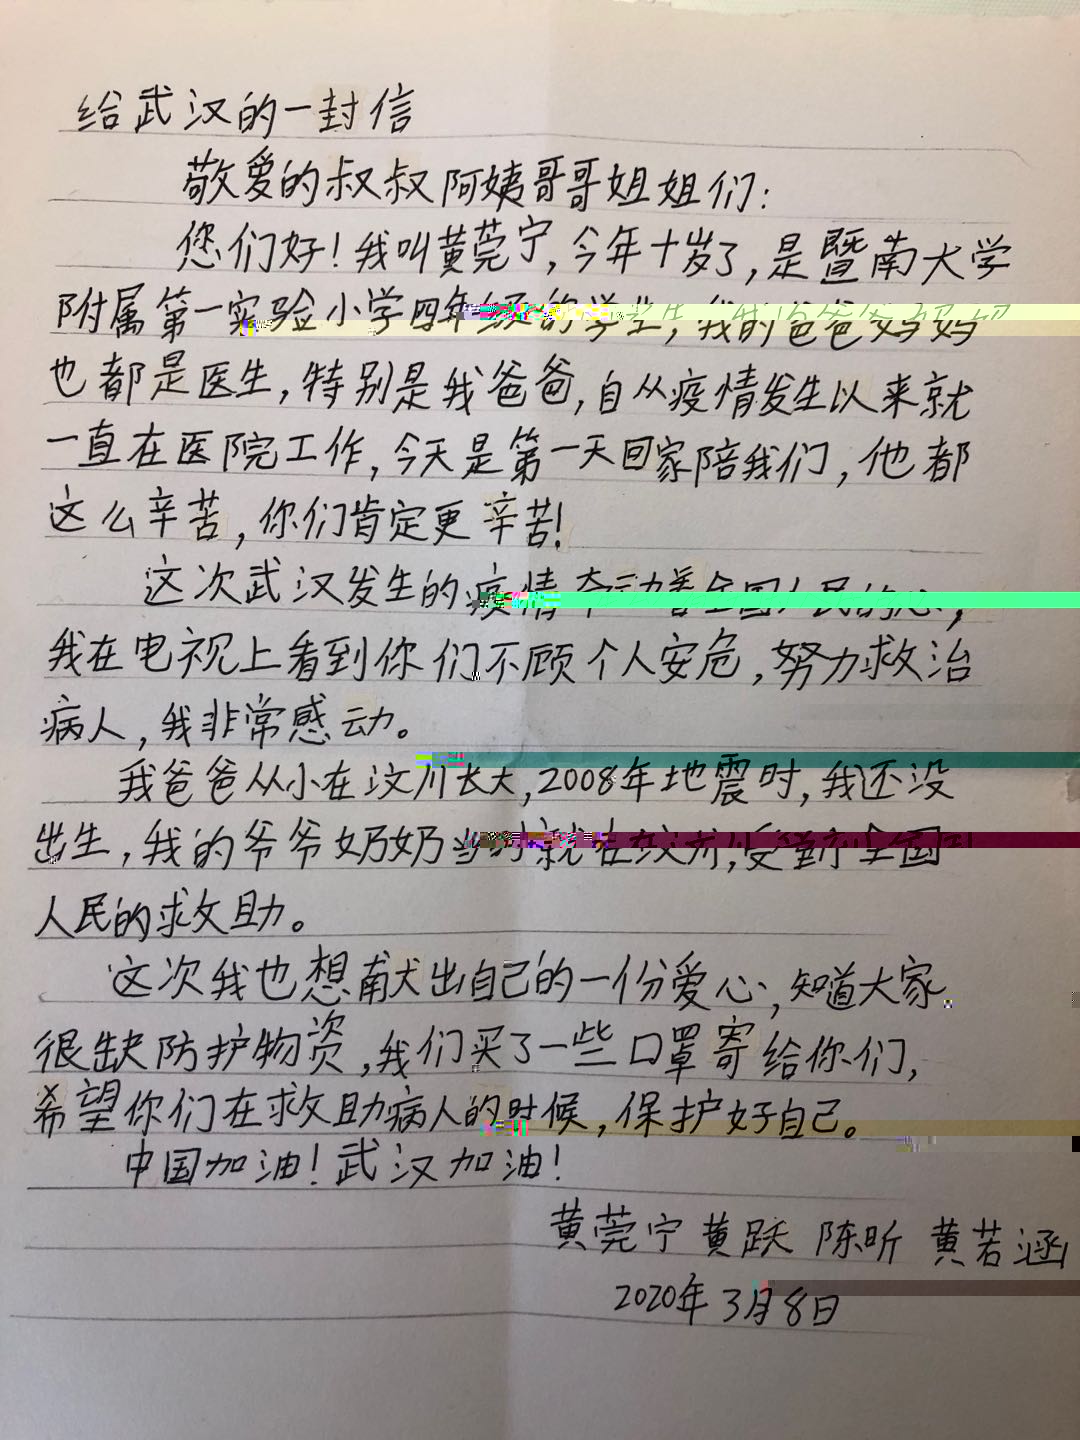 给武汉的一封信
敬爱的叔叔阿姨哥哥姐姐们：
您们好！我叫黄莞宁，今年十岁了，是暨南大学
附属第一实验小学四年级的学生，我的爸爸妈妈
也都是医生，特别是我爸爸，自从疫情发生以来就
一直在医院工作，今天是第一天回家陪我们，他都
这么辛苦，你们肯定更辛苦！
这次武汉发生的疫情牵动着全国人民的心，
我在电视上看到你们不顾个人安危，努力救治
病人，我非常感动。
我爸爸从小在汶川长大，2008年地震时，我还没
出生，我的爷爷奶奶当时就在汶川，受到全国
人民的救助。
这次我也想献出自己的一份爱心，知道大家
很缺防护物资，我们买了一些口罩寄给你们，
希望你们在救助病人的时候，保护好自己。
中国加油！武汉加油！
黄莞宁 黄跃 陈昕 黄若涵
2020年3月8日